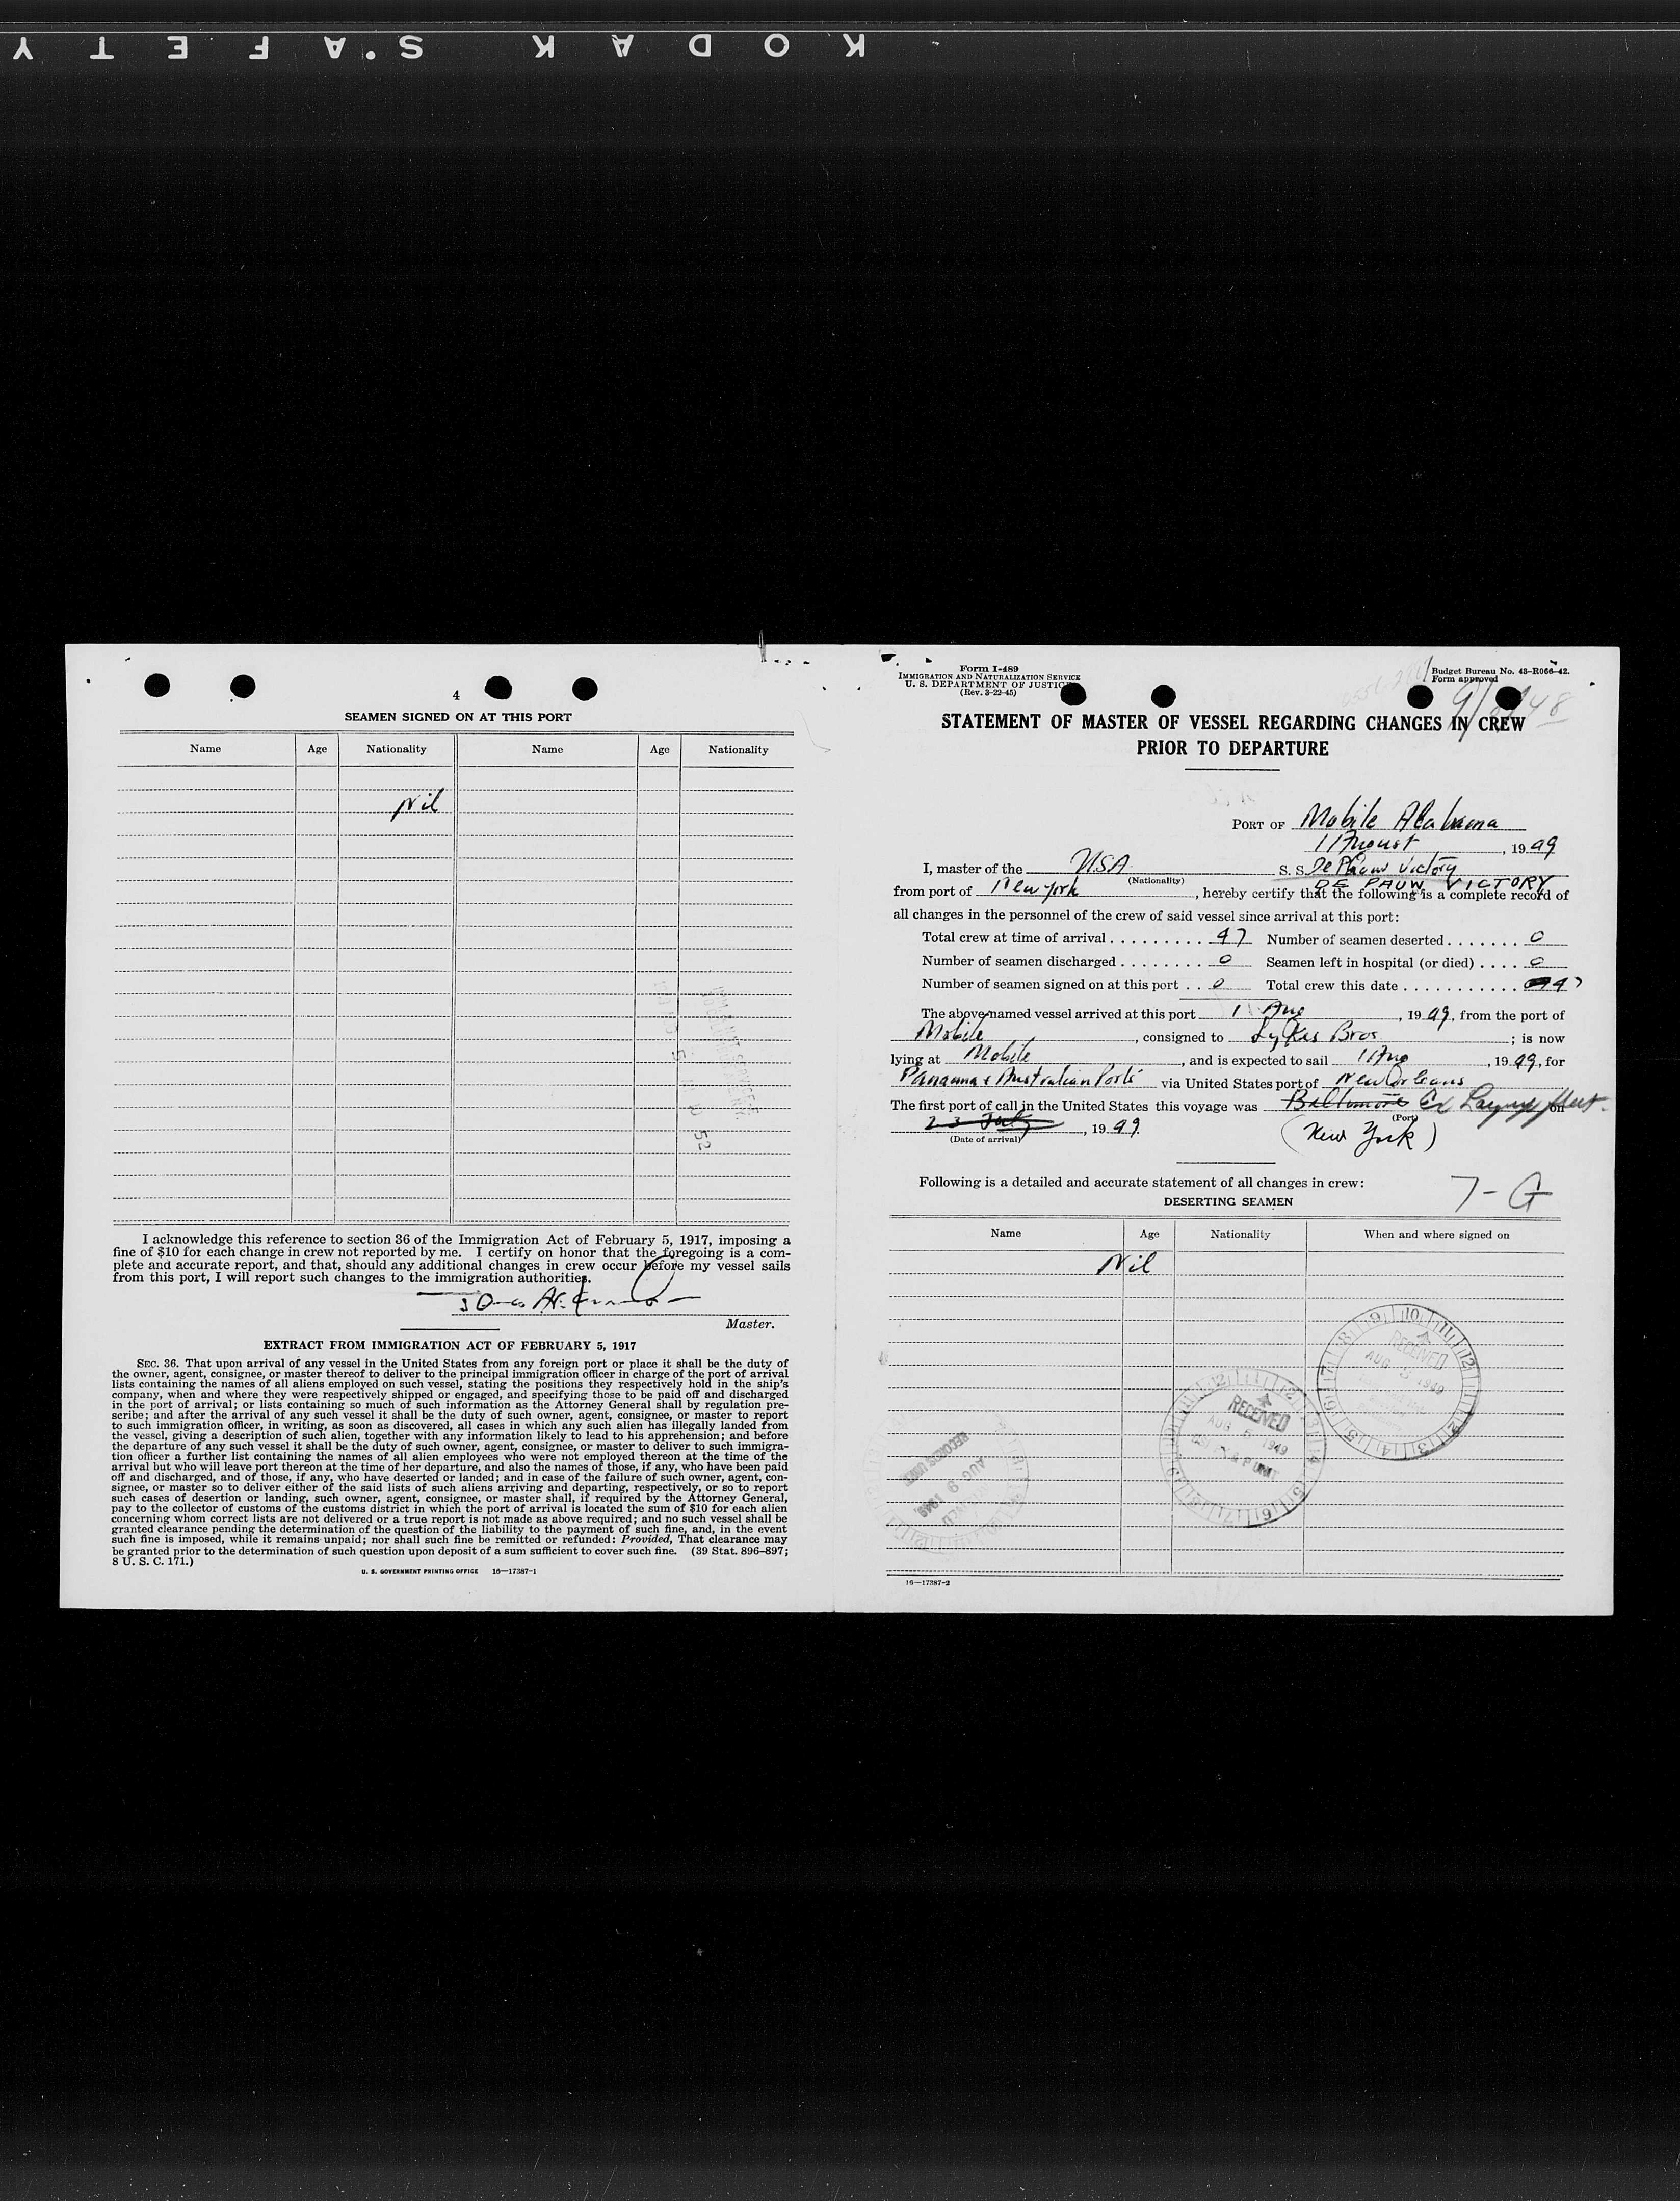 KODAK SAFETY
4
SEAMEN SIGNED ON AT THIS PORT
Name Age Nationality Name Age Nationality
Nil
I acknowledge this reference to section 36 of the Immigration Act of February 5, 1917, imposing a
fine of $10 for each change in crew not reported by me. I certify on honor that the foregoing is a com-
plete and accurate report, and that, should any additional changes in crew occur before my vessel sails
from this port, I will report such changes to the immigration authorities.
Master.
EXTRACT FROM IMMIGRATION ACT OF FEBRUARY 5, 1917
SEC. 36. That upon arrival of any vessel in the United States from any foreign port or place it shall be the duty of
the owner, agent, consignee, or master thereof to deliver to the principal immigration officer in charge of the port of arrival
lists containing the names of all aliens employed on such vessel, stating the positions they respectively hold in the ship's
company, when and where they were respectively shipped or engaged, and specifying those to be paid off and discharged
in the port of arrival; or lists containing so much of such information as the Attorney General shall by regulation pre-
scribe; and after the arrival of any such vessel it shall be the duty of such owner, agent, consignee, or master to report
to such immigration officer, in writing, as soon as discovered, all cases in which any such alien has illegally landed from
the vessel, giving a description of such alien, together with any information likely to lead to his apprehension; and before
the departure of any such vessel it shall be the duty of such owner, agent, consignee, or master to deliver to such immigra-
tion officer a further list containing the names of all alien employees who were not employed thereon at the time of the
arrival but who will leave port thereon at the time of her departure, and also the names of those, if any, who have been paid
off and discharged, and of those, if any, who have deserted or landed; and in case of the failure of such owner, agent, con-
signee, or master so to deliver either of the said lists of such aliens arriving and departing, respectively, or so to report
such cases of desertion or landing, such owner, agent, consignee, or master shall, if required by the Attorney General,
pay to the collector of customs of the customs district in which the port of arrival is located the sum of $10 for each alien
concerning whom correct lists are not delivered or a true report is not made as above required; and no such vessel shall be
granted clearance pending the determination of the question of the liability to the payment of such fine, and, in the event
such fine is imposed, while it remains unpaid; nor shall such fine be remitted or refunded: Provided, That clearance may
be granted prior to the determination of such question upon deposit of a sum sufficient to cover such fine. (39 Stat. 896-897;
8 U. S. C. 171.)
U. S. GOVERNMENT PRINTING OFFICE 16—17387-1
Form I-489
IMMIGRATION AND NATURALIZATION SERVICE
U. S. DEPARTMENT OF JUSTICE
(Rev. 3-22-45)
Budget Bureau No. 43-R066-42.
Form approved
STATEMENT OF MASTER OF VESSEL REGARDING CHANGES IN CREW
PRIOR TO DEPARTURE
PORT OF Mobile Alabama
11 August, 1949
I, master of the USA S. S. De Pauw Victory
(Nationality)
DE PAUW VICTORY
from port of New York, hereby certify that the following is a complete record of
all changes in the personnel of the crew of said vessel since arrival at this port:
Total crew at time of arrival 47 Number of seamen deserted 0
Number of seamen discharged 0 Seamen left in hospital (or died) 0
Number of seamen signed on at this port 0 Total crew this date 47
The above-named vessel arrived at this port Aug, 1949, from the port of
Mobile, consigned to Lykes Bros; is now
lying at Mobile, and is expected to sail 11 Aug, 1949, for
Panama & Australian Ports via United States port of New Orleans
The first port of call in the United States this voyage was Baltimore Ex on
(Port)
23 July, 1949.
(Date of arrival)
(New York)
Following is a detailed and accurate statement of all changes in crew:
7-G
DESERTING SEAMEN
Name Age Nationality When and where signed on
Nil
RECEIVED
AUG 1949
RECEIVED
AUG 1949
AUG 9 1949
16—17387-2